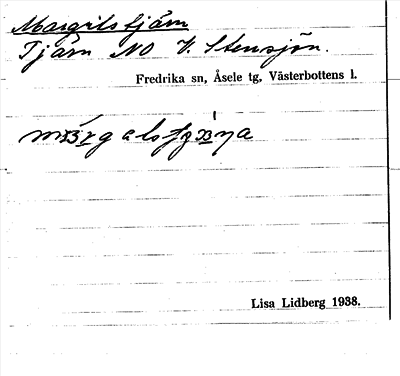 Margilstjärn
Tjärn NO V. Stensjön.
Fredrika sn, Åsele tg, Västerbottens l.
Lisa Lidberg 1938.